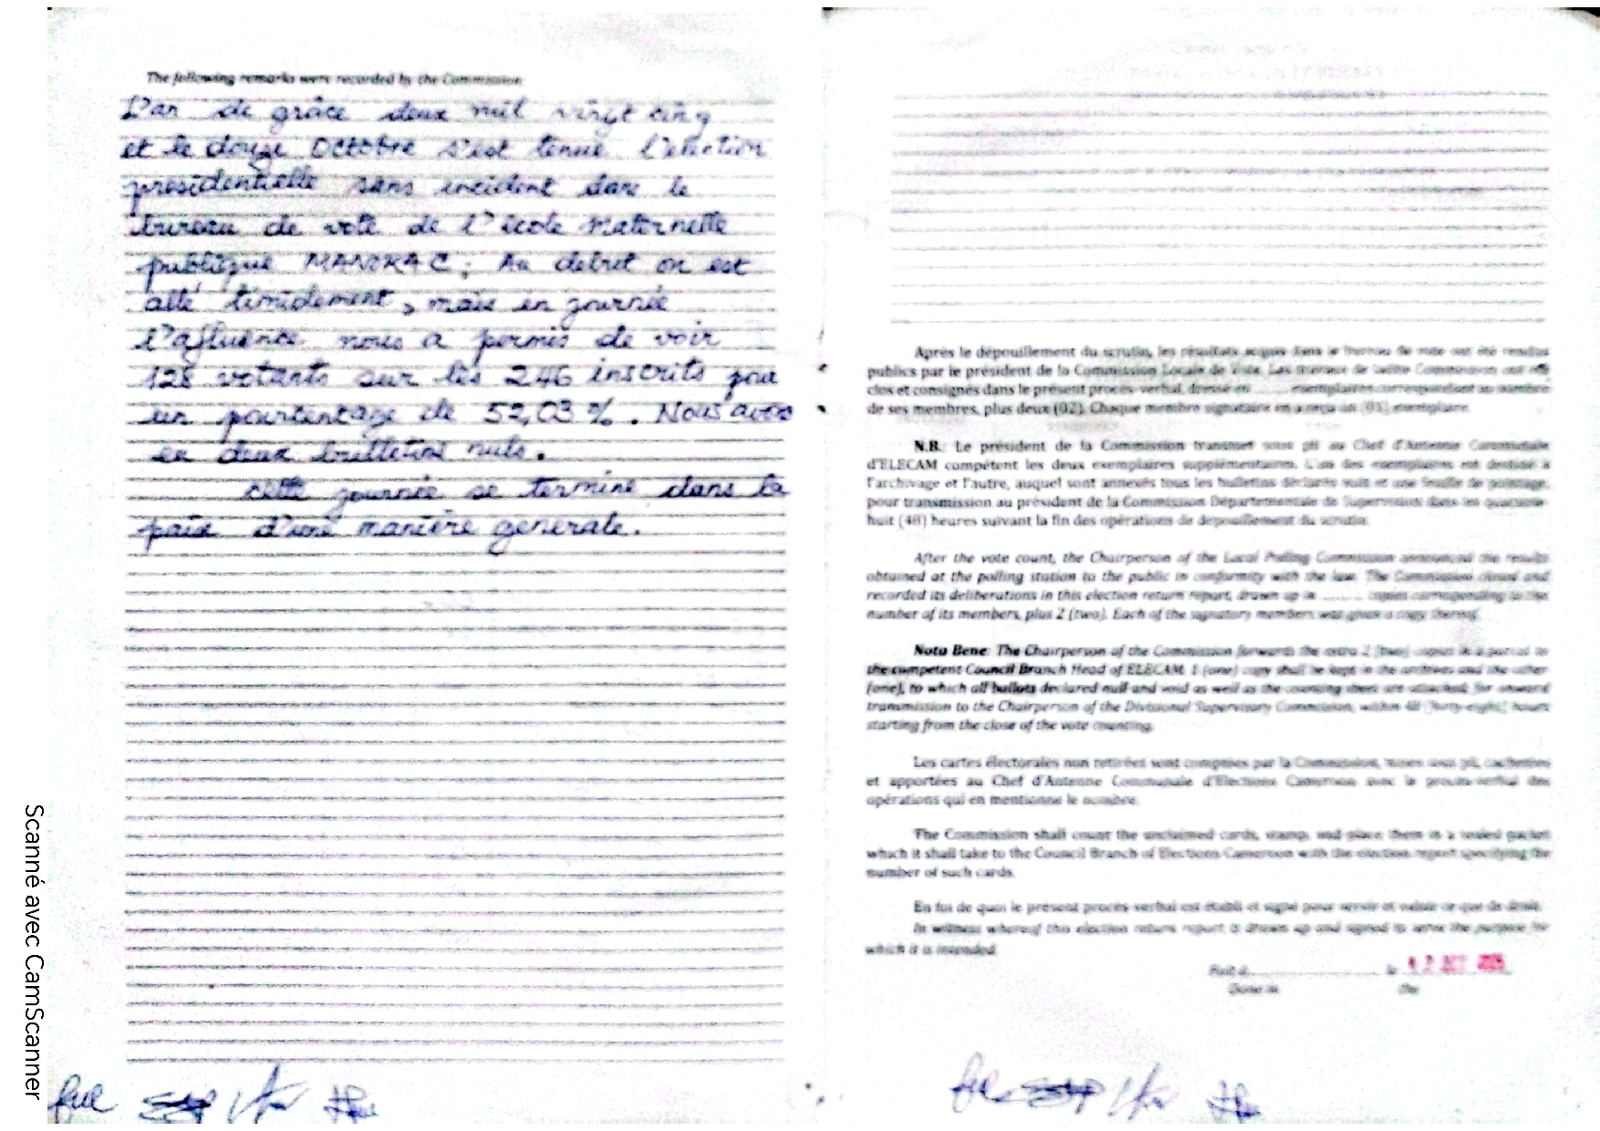 The following remarks were recorded by the Commission
L'an de grâce deux mil vingt cinq
et le douze Octobre s'est tenue l'election
presidentielle sans incident dans le
bureau de vote de l'école Maternelle
publique ; Au debut on est
allé timidement, mais en journée
l'afluence nous a permis de voir
128 votants sur les 246 inscrits pour
un pourcentage de 52,03 %. Nous avons
eu deux bulletins nuls.
cette journée se termine dans la
paix d'une manière generale.
Après le dépouillement du scrutin, les résultats acquis dans le bureau de vote ont été rendus
publics par le président de la Commission Locale de Vote. Les travaux de ladite Commission ont été
clos et consignés dans le présent procès-verbal, dressé en ........ exemplaires correspondant au nombre
de ses membres, plus deux (02). Chaque membre signataire en a reçu un (01) exemplaire.
N.B.: Le président de la Commission transmet sous pli au Chef d'Antenne Communale
d'ELECAM compétent les deux exemplaires supplémentaires. L'un des exemplaires est destiné à
l'archivage et l'autre, auquel sont annexés tous les bulletins déclarés nuls et une feuille de pointage,
pour transmission au président de la Commission Départementale de Supervision dans les quarante-
huit (48) heures suivant la fin des opérations de dépouillement du scrutin.
After the vote count, the Chairperson of the Local Polling Commission announced the results
obtained at the polling station to the public in conformity with the law. The Commission closed and
recorded its deliberations in this election return report, drawn up in ........ copies corresponding to the
number of its members, plus 2 (two). Each of the signatory members was given a copy thereof.
Nota Bene: The Chairperson of the Commission forwards the extra 2 (two) copies in a parcel to
the competent Council Branch Head of ELECAM. 1 (one) copy shall be kept in the archives and the other
(one), to which all ballots declared null and void as well as the counting sheet are attached, for onward
transmission to the Chairperson of the Divisional Supervisory Commission, within 48 (forty-eight) hours
starting from the close of the vote counting.
Les cartes électorales non retirées sont comptées par la Commission, mises sous pli, cachetées
et apportées au Chef d'Antenne Communale d'Elections Cameroon avec le procès-verbal des
opérations qui en mentionne le nombre.
The Commission shall count the unclaimed cards, stamp, and place them in a sealed packet
which it shall take to the Council Branch of Elections Cameroon with the election report specifying the
number of such cards.
En foi de quoi le présent procès-verbal est établi et signé pour servir et valoir ce que de droit.
In witness whereof this election return report is drawn up and signed to serve the purpose for
which it is intended.
Fait à ........ le 12 OCT 2025
Done in the
Scanné avec CamScanner